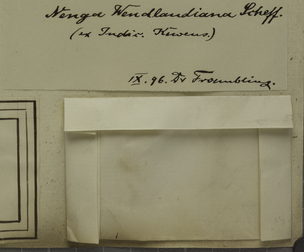 Nenga Wendlandiana Scheff.
(ex Indic. Kewens.)
IX. 96. Dr Froembling.